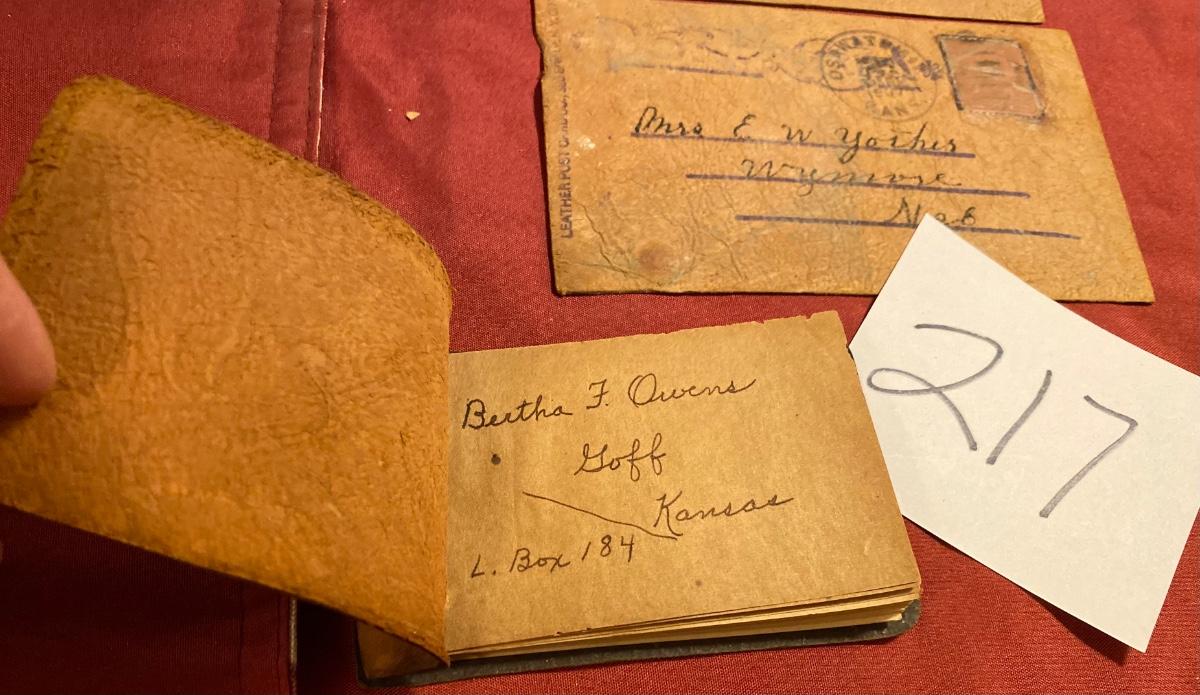 OSAWATOMIE
KANS
LEATHER POST CARD
Mrs E W Yother
Wymore
Neb
Bertha F. Owens
Goff
Kansas
L. Box 184
217